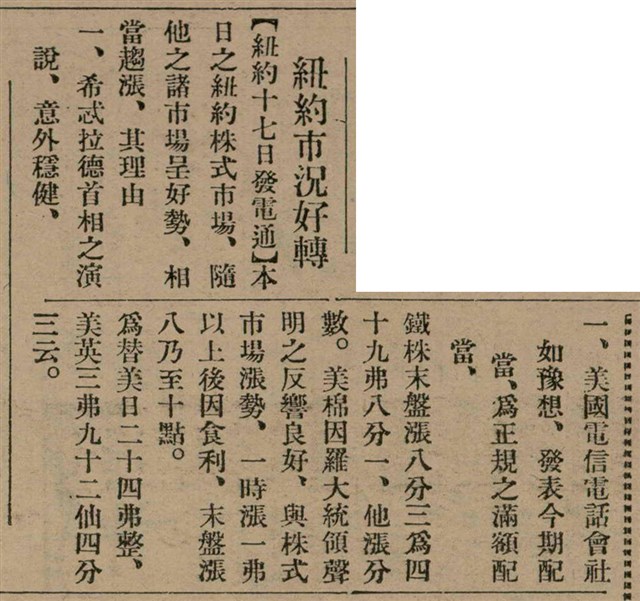 紐約市況好轉
【紐約十七日發電通】本
日之紐約株式市場、隨
他之諸市場呈好勢、相
當趨漲、其理由
一、希忒拉德首相之演
說、意外穩健、
一、美國電信電話會社
如豫想、發表今期配
當、爲正規之滿額配
當、
鐵株末盤漲八分三爲四
十九弗八分一、他漲分
數。美棉因羅大統領聲
明之反響良好、與株式
市場漲勢、一時漲一弗
以上後因食利、末盤漲
八乃至十點。
爲替美日二十四弗整、
美英三弗九十二仙四分
三云。